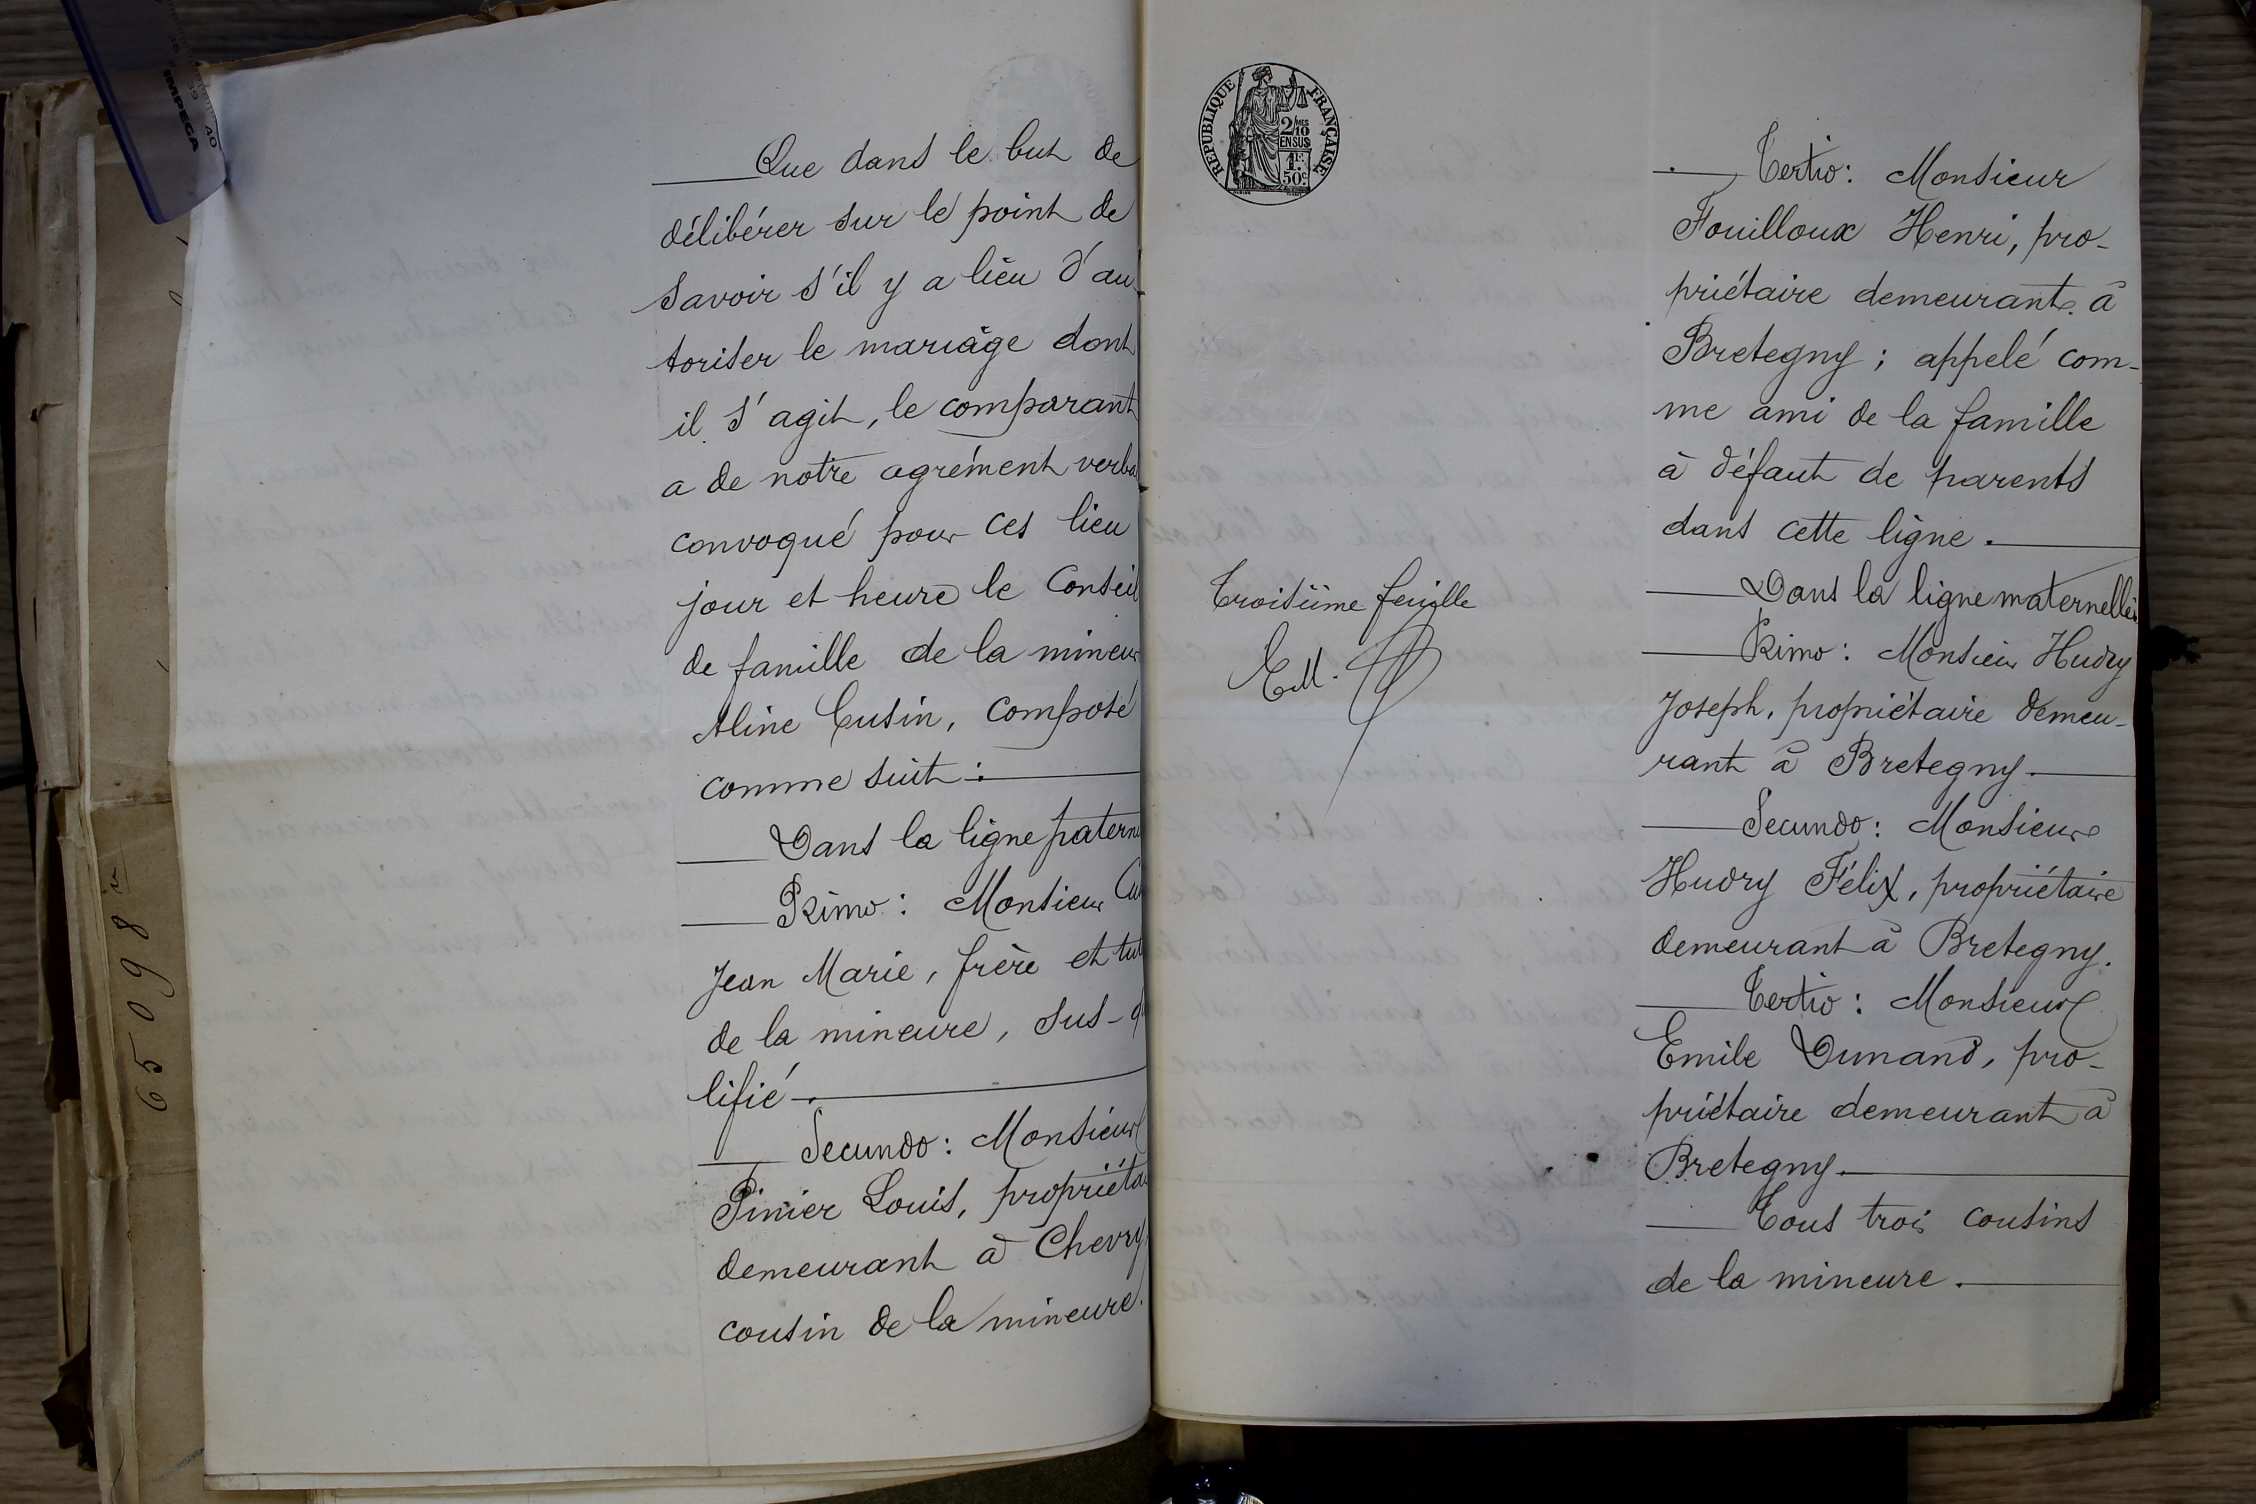 Que dans le but de
délibérer sur le point de
savoir s'il y a lieu d'au-
toriser le mariage dont
il s'agit, le comparant
a de notre agrément verba
convoqué pour ces lieu
jour et heure le Conseil
de famille de la mineur
Aline Cusin, composé
comme suit :
Dans la ligne patern
Primo : Monsieur Cu
Jean Marie, frère et tut
de la mineure, sus-q
lifié.
Secundo : Monsieur
Pinier Louis, propriéta
demeurant à Chevry
cousin de la mineure.
REPUBLIQUE FRANÇAISE
2/10
MES
EN SUS
1F.
50c.
Troisième feuille
Tertio : Monsieur
Fouilloux Henri, pro-
priétaire demeurant à
Bretegny ; appelé com-
me ami de la famille
à défaut de parents
dans cette ligne.
Dans la ligne maternelle
Primo : Monsieur Hudry
Joseph, propriétaire demeu-
rant à Bretegny.
Secundo : Monsieur
Hudry Félix, propriétaire
demeurant à Bretegny.
Tertio : Monsieur
Emile Dunand, pro-
priétaire demeurant à
Bretegny.
Tous trois cousins
de la mineure.
65098
IMPEGA
40
39